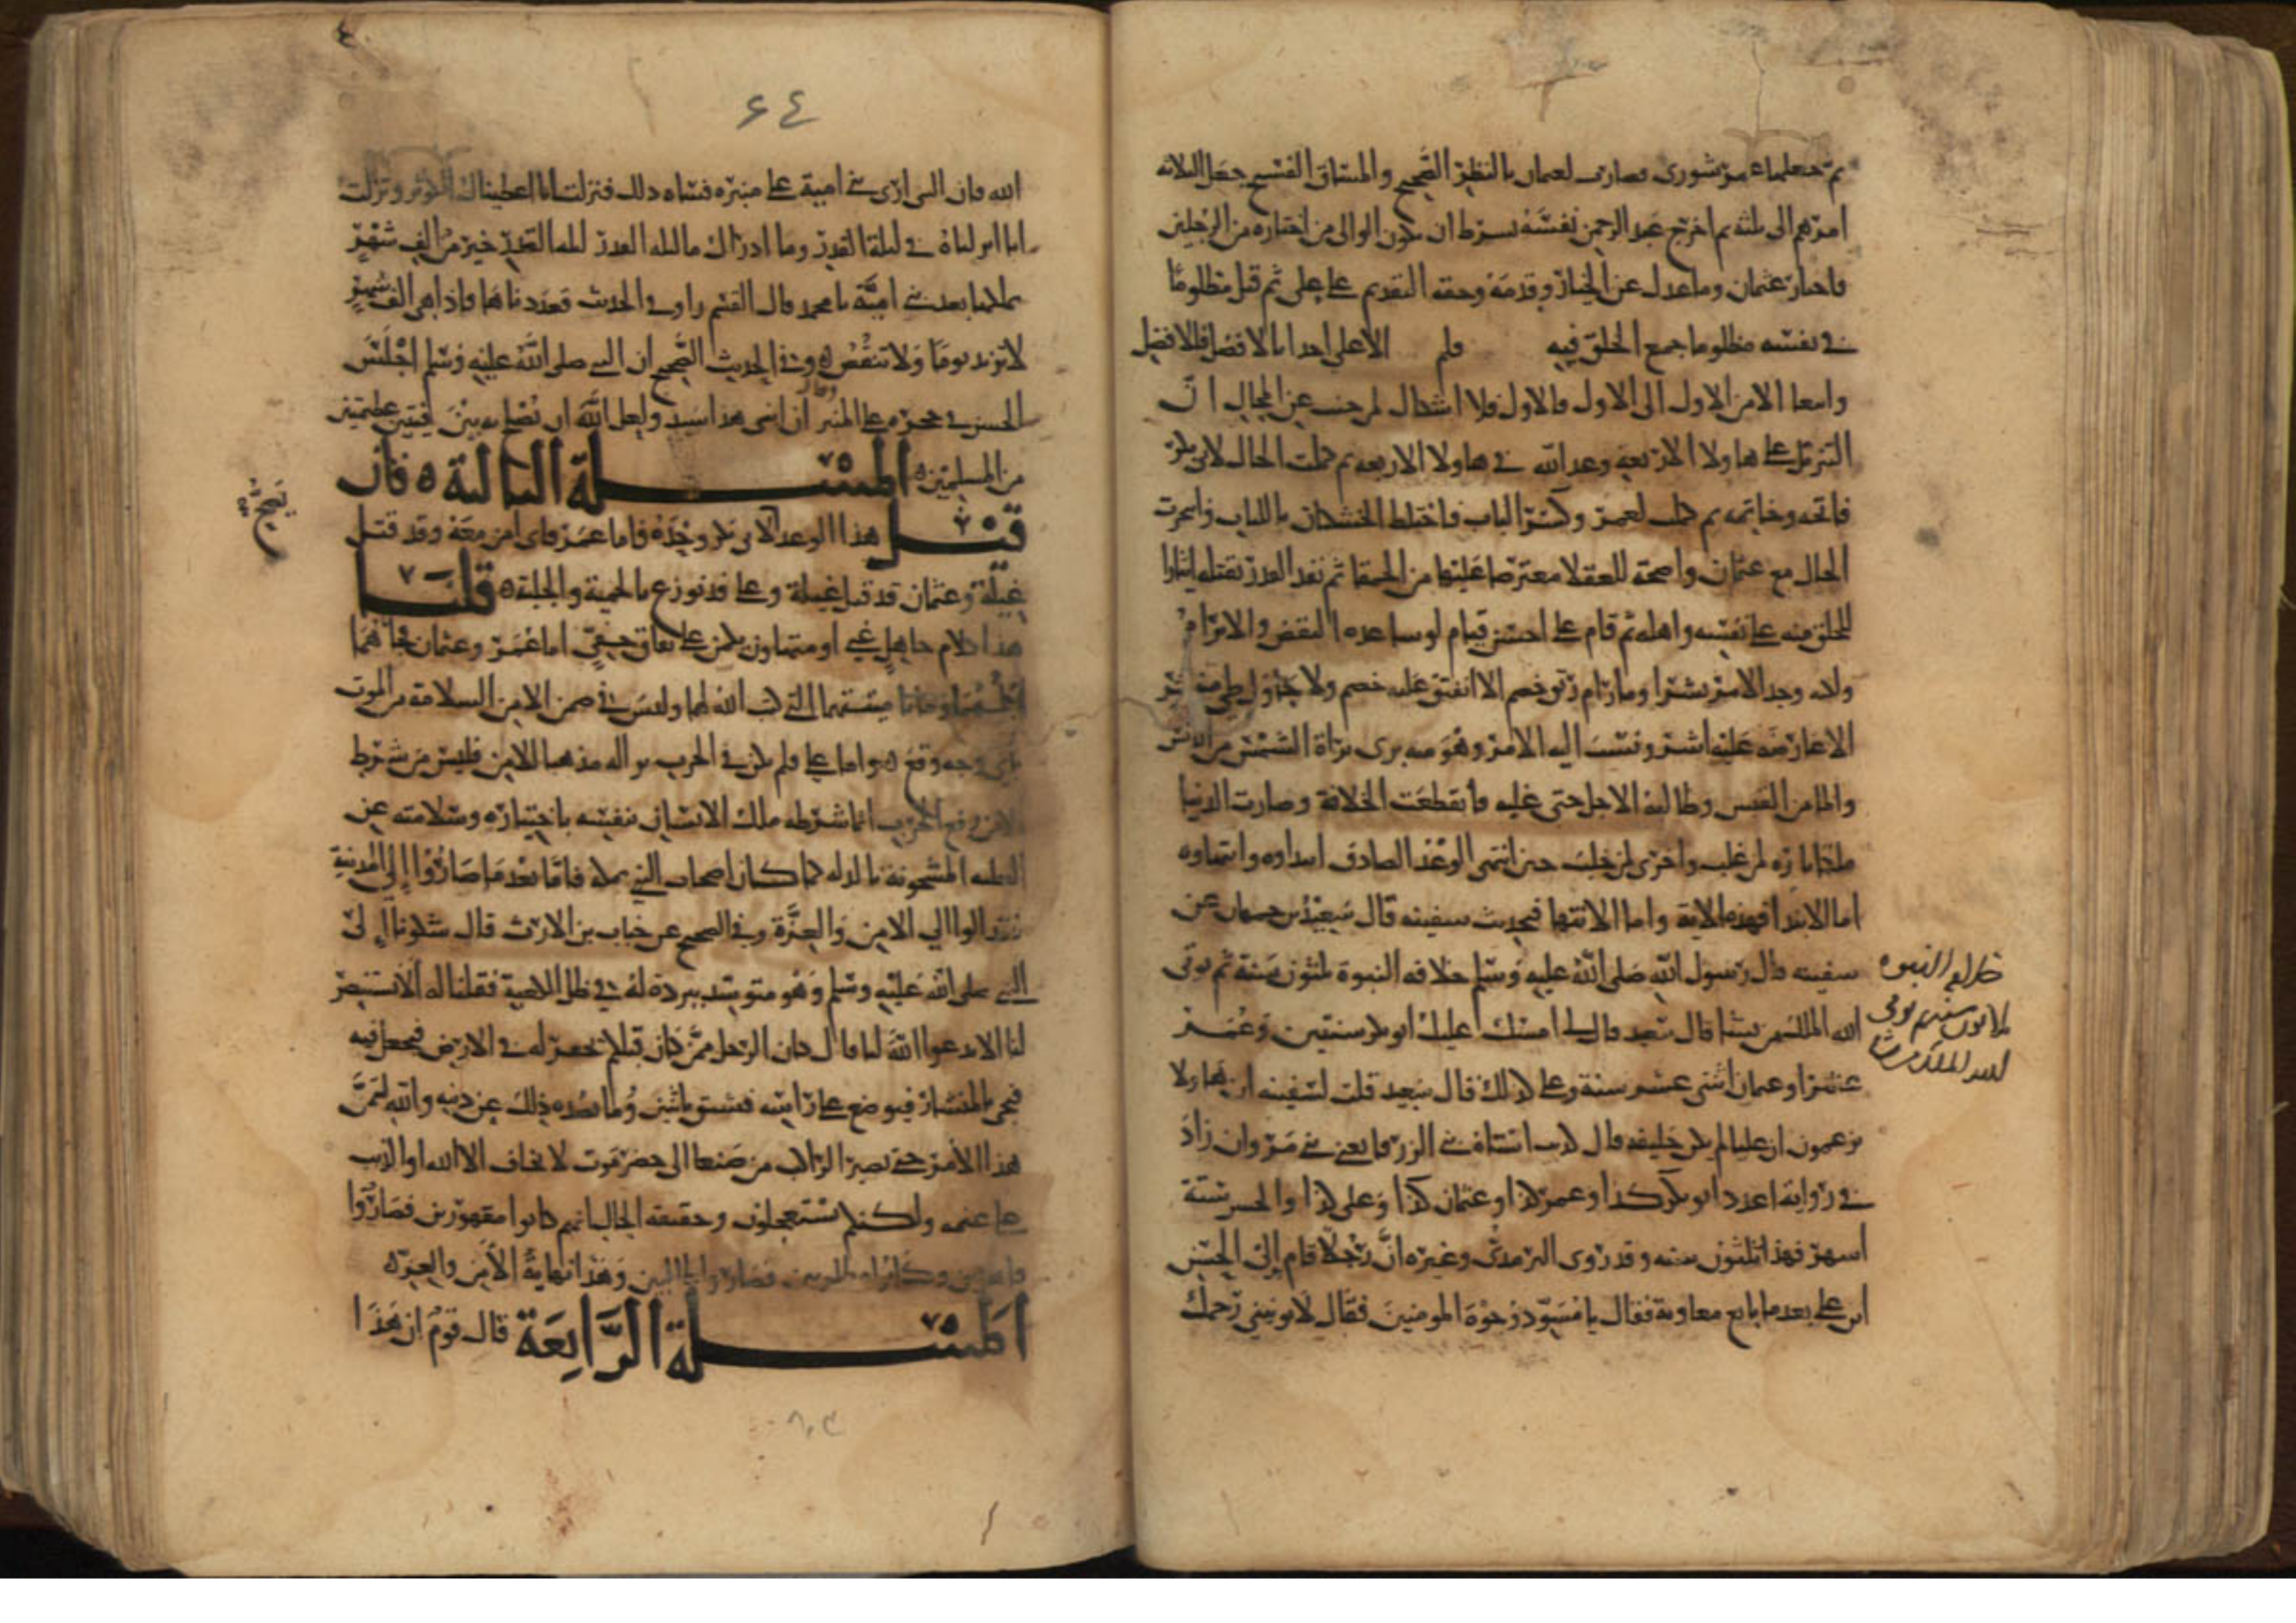 ثم جعلها عمر شورى فصارت لعثمان بالنظر الصحيح والمساق الفسيح جعل الثلاثة
امرهم الى ثلثة ثم اخرج عبد الرحمن نفسه بشرط ان يكون الوالى من اختاره من الرجلين
فاختار عثمان وما عدل عن الخيار وقدمه وحقه التقديم على على ثم قتل مظلوما
في نفسه مظلوما جميع الخلق فيه فلم الا على اخذا بالافضل فالافضل
الامر الاول الى الاول فالاول فلا اشكال لمن عن المحال ان
التنزيل على هاولا الاربعة وعد الله في هاولا الاربعة ثم كملت الحال لابي بكر
فاتحة وخاتمة ثم كملت لعمر وكسر الباب فاختلط الخشكار باللباب وانجرت
الحال مع عثمان واضحة للعقلا معترضا عليها من الحمقا ثم نفد القدر بقتله ايثارا
للخلق منه على نفسه واهله ثم قام على احسن قيام لو ساعده النقض والابرام
ولكنه وجد الامر نشرا وما رام رتق خصم الا انفتق عليه خصم ولا حاول طي منتشر
الا عارضه عليه اشر ونسب اليه الامر وهو منه برى براة الشمس من الدنس
والما من القبس وطالبه الاجل حتى غلبه فانقطعت الخلافة وصارت الدنيا
ملكا تارة لمن غلب واخرى لمن خلب حين انتهى الوعد الصادق ابتداوه وانتهاوه
اما الابتدا فهذه الاية واما الانتها فبحديث سفينة قال سعيد بن جمهان عن
سفينة قال رسول الله صلى الله عليه وسلم خلافة النبوة ثلثون سنة ثم يوتى
الله الملك من يشا قال سعيد قال لى امسك عليك ابو بكر سنتين وعمر
عشرا وعثمان اثنى عشر سنة وعلى كذلك قال سعيد قلت لسفينة ان هاولا
يزعمون ان عليا لم يكن خليفة قال كذب استاه بني الزرقا يعني بني مروان زاد
في رواية اعدد ابو بكر كذا وعمر كذا وعثمان كذا وعلى كذا والحسن ستة
اشهر فهذا ثلثون سنة وقد روى الترمذى وغيره ان رجلا قام الى الحسن
ابن على بعد ما بايع معاوية فقال يا مسود وجوه المومنين فقال لا تونبني رحمك
خلافة النبوه
ثلاثون سنة ثم يوتى
الله الملك من يشا
٦٤
الله فان النبي ارى بني امية على منبره فساه ذلك فنزلت انا اعطيناك الكوثر ونزلت
انا انزلناه في ليلة القدر وما ادراك ما ليلة القدر ليلة القدر خير من الف شهر
يملكها بعدك بني امية يا محمد قال القسم راوي الحديث فعددناها فاذا هي الف شهر
لا تزيد يوما ولا تنقص ه وفي الحديث الصحيح ان النبي صلى الله عليه وسلم اجلس
الحسن في حجره على المنبر وقال ان ابنى هذا سيد ولعل الله ان يصلح به بين فيتين عظيمتين
من المسلمين ه المسئلة الثالثة ه فان
قيل هذا الوعد لابي بكر وحده فاما عمر فاى امن معه وقد قتل
غيلة وعثمان قد قتل غيلة وعلى قد نوزع بالحمية والجلبة ه قلنا
هذا كلام جاهل غبي او متهاون يكمن على نفاق خفي اما عمر وعثمان فجاهما
اجلهما وماتا ميتتهما التي كتب الله لهما وليس في ضمن الامن السلامة من الموت
باى وجه وقع ه واما على فلم يكن في الحرب نزاله مذهبا للامن فليس من شرط
الامن رفع الحرب انما شرطه ملك الانسان نفسه باختياره وسلامته عن
الغلبة المشحونة بالذلة كما كان اصحاب النبي بمكة فاما بعد ما صاروا الى المدينة
فقد الوا الى الامن والعزة وفي الصحيح عن خباب بن الارت قال شكونا الى
النبي صلى الله عليه وسلم وهو متوسد بردة له في ظل الكعبة فقلنا له الا تستنصر
لنا الا تدعوا الله لنا قال كان الرجل ممن كان قبلكم تحفر له في الارض فيجعل فيه
فيجى بالمنشار فيوضع على راسه فيشق باثنين وما يصده ذلك عن دينه والله ليتمن
هذا الامر حتى يصير الراكب من صنعا الى حضرموت لا يخاف الا الله او الذيب
على غنمه ولكنكم تستعجلون وحقيقة الحال انهم كانوا مقهورين فصاروا
قاهرين وكانوا مطلوبين فصاروا طالبين وهذا نهاية الامن والعزة ه
المسئلة الرابعة قال قوم ان هذا